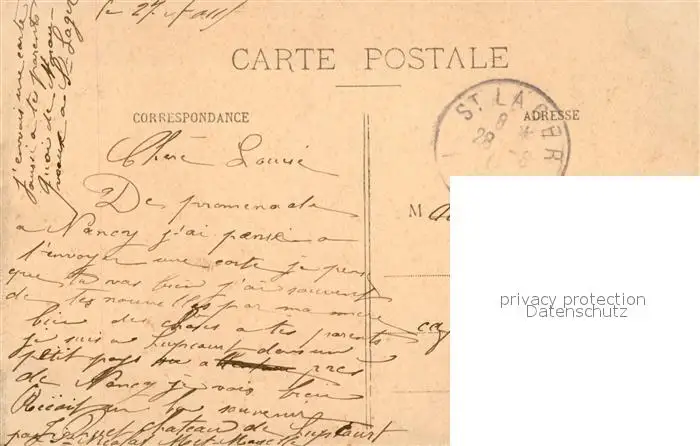 le 27 Aout
CARTE POSTALE
CORRESPONDANCE
ADRESSE
ST LAGER
8 *
28
8
M
Chère Louise
De promenade
a Nancy j'ai pensé a
t'envoyer une carte je pense
que tu vas bien j'ai souvent
de tes nouvelles par ma mère
bien des choses a tes parents
je suis a dans un
petit pays près
de Nancy je vais bien
Reçoit un bon souvenir
chateau de
Nicolas
j'envois une carte
aussi a tes parents
Quai de
St Lager
privacy protection
Datenschutz